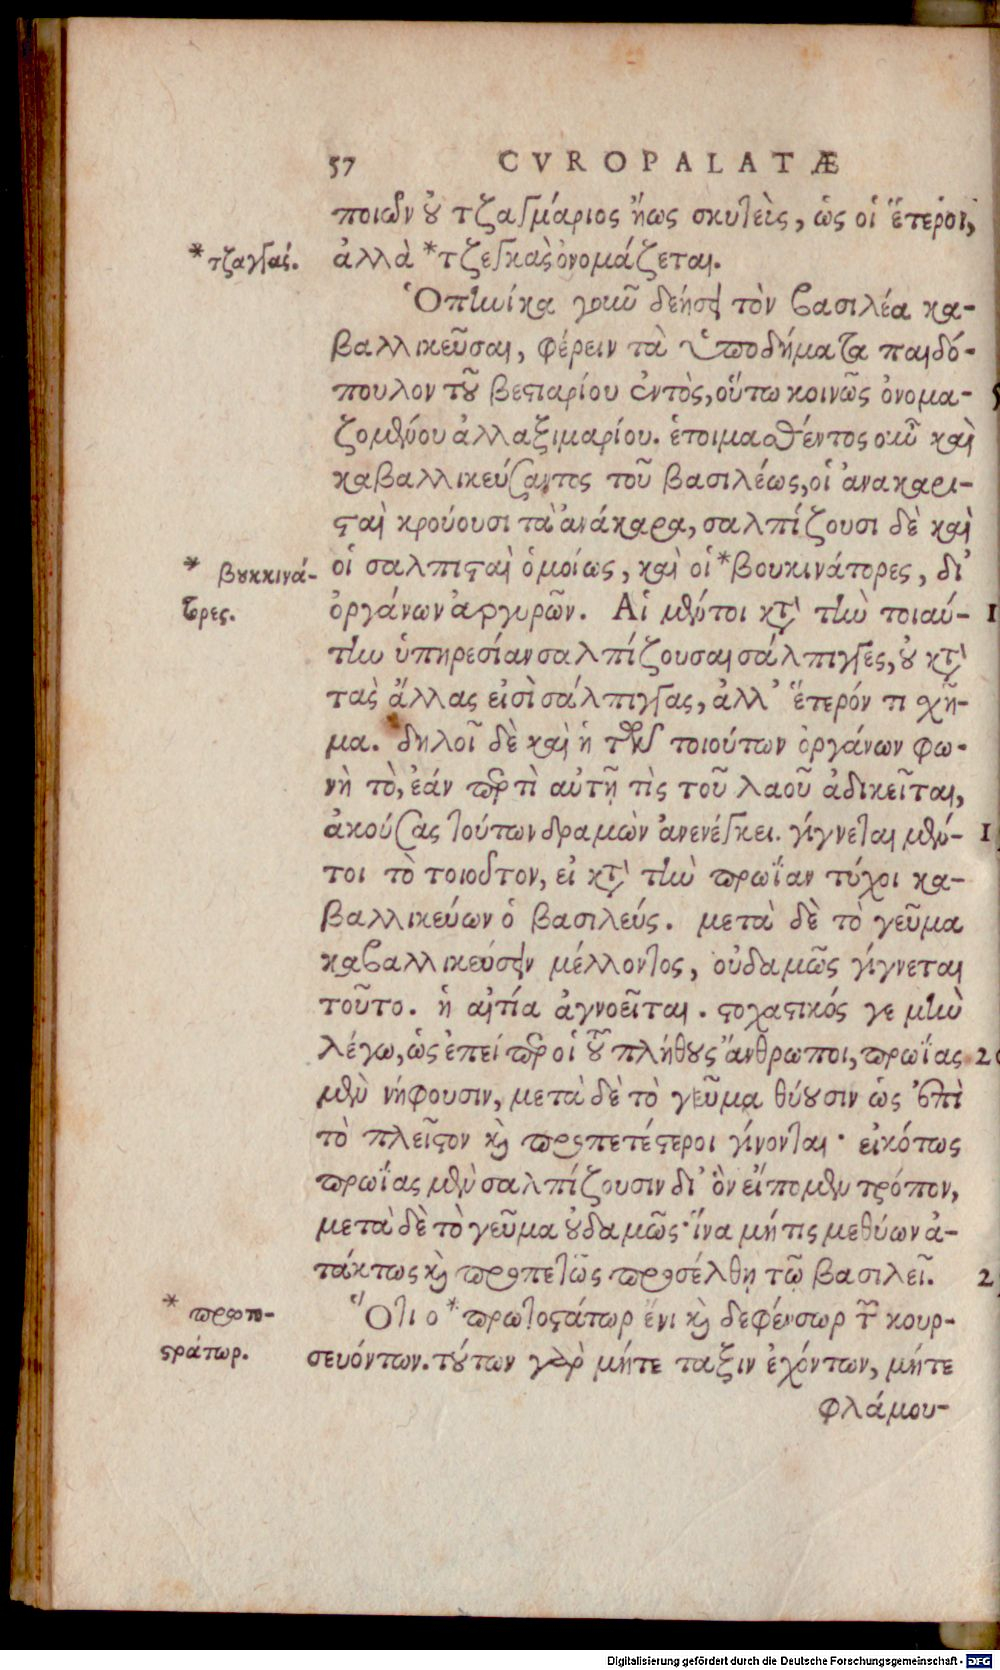 57 CVROPALATÆ
ποιῶν οὐ τζαγγάριος ἤως σκυτεὺς, ὡς οἱ ἕτεροι,
* τζαγγάς.
ἀλλὰ *τζεγκὰς ὀνομάζεται.
Ὁπηνίκα γοῦν δεήσει τὸν βασιλέα κα-
βαλλικεῦσαι, φέρειν τὰ ὑποδήματα παιδό-
πουλον τοῦ βεστιαρίου ἐντὸς, οὕτω κοινῶς ὀνομα-
ζομένου ἀλλαξιμαρίου. ἑτοιμασθέντος οὖν καὶ
καβαλλικεύσαντος τοῦ βασιλέως, οἱ ἀνακαρι-
σταὶ κρούουσι τὰ ἀνάκαρα, σαλπίζουσι δὲ καὶ
* βουκκινά-
τορες.
οἱ σαλπισταὶ ὁμοίως, καὶ οἱ *βουκινάτορες, δι’
ὀργάνων ἀργυρῶν. Αἱ μέντοι κατὰ τὴν τοιαύ-
την ὑπηρεσίαν σαλπίζουσαι σάλπιγγες, οὐ κατὰ
τὰς ἄλλας εἰσὶ σάλπιγγας, ἀλλ’ ἕτερόν τι χῆ-
μα. δηλοῖ δὲ καὶ ἡ τῶν τοιούτων ὀργάνων φω-
νὴ τὸ, ἐάν περ τὶ αὐτῇ τὶς τοῦ λαοῦ ἀδικεῖται,
ἀκούσας τούτων δραμὼν ἀνενέγκει. γίγνεται μέν-
τοι τὸ τοιοῦτον, εἰ κατὰ τὴν πρωΐαν τύχοι κα-
βαλλικεύων ὁ βασιλεύς. μετὰ δὲ τὸ γεῦμα
καβαλλικεύσειν μέλλοντος, οὐδαμῶς γίγνεται
τοῦτο. ἡ αἰτία ἀγνοεῖται. στοχαστικός γε μὴν
λέγω, ὡς ἐπεί περ οἱ τοῦ πλήθους ἄνθρωποι, πρωΐας
μὲν νήφουσιν, μετὰ δὲ τὸ γεῦμα θύουσιν ὡς ἐπὶ
τὸ πλεῖστον καὶ προπετέστεροι γίνονται· εἰκότως
πρωΐας μὲν σαλπίζουσιν δι’ ὃν εἴπομεν τρόπον,
μετὰ δὲ τὸ γεῦμα οὐδαμῶς· ἵνα μή τις μεθύων ἀ-
τάκτως καὶ προπετῶς προσέλθῃ τῷ βασιλεῖ.
* πρωτο-
στράτωρ.
Ὅτι ο *πρωτοστάτωρ ἔνι καὶ δεφένσωρ τῶν κουρ-
σευόντων. τούτων γὰρ μήτε ταξιν ἐχόντων, μήτε
φλάμου-
Digitalisierung gefördert durch die Deutsche Forschungsgemeinschaft - DFG